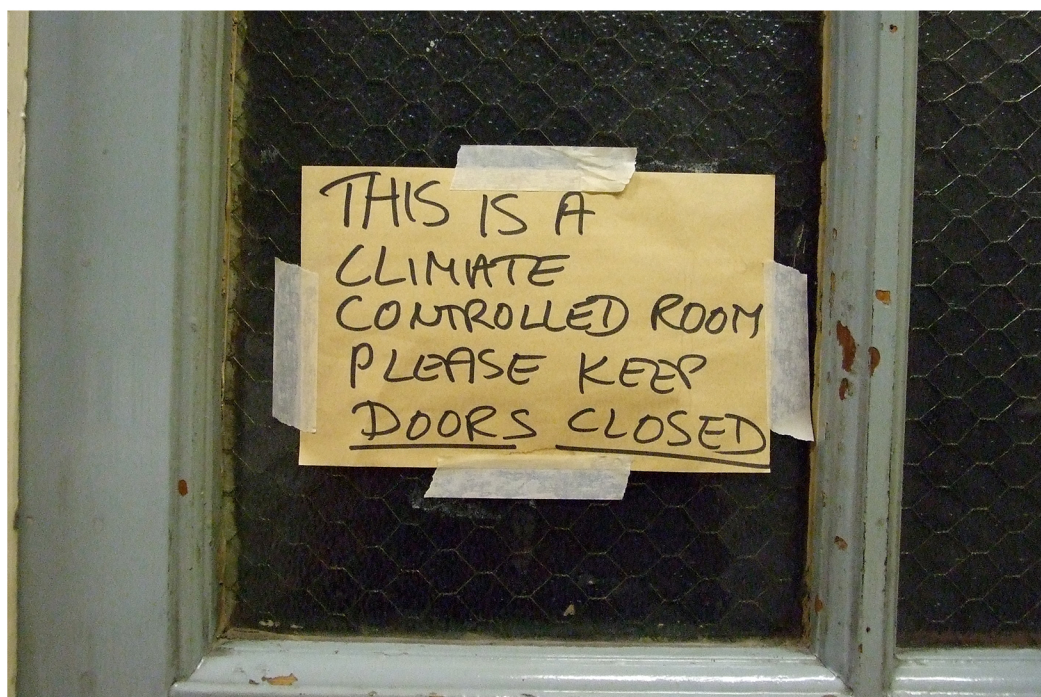 THIS IS A
CLIMATE
CONTROLLED ROOM
PLEASE KEEP
DOORS CLOSED